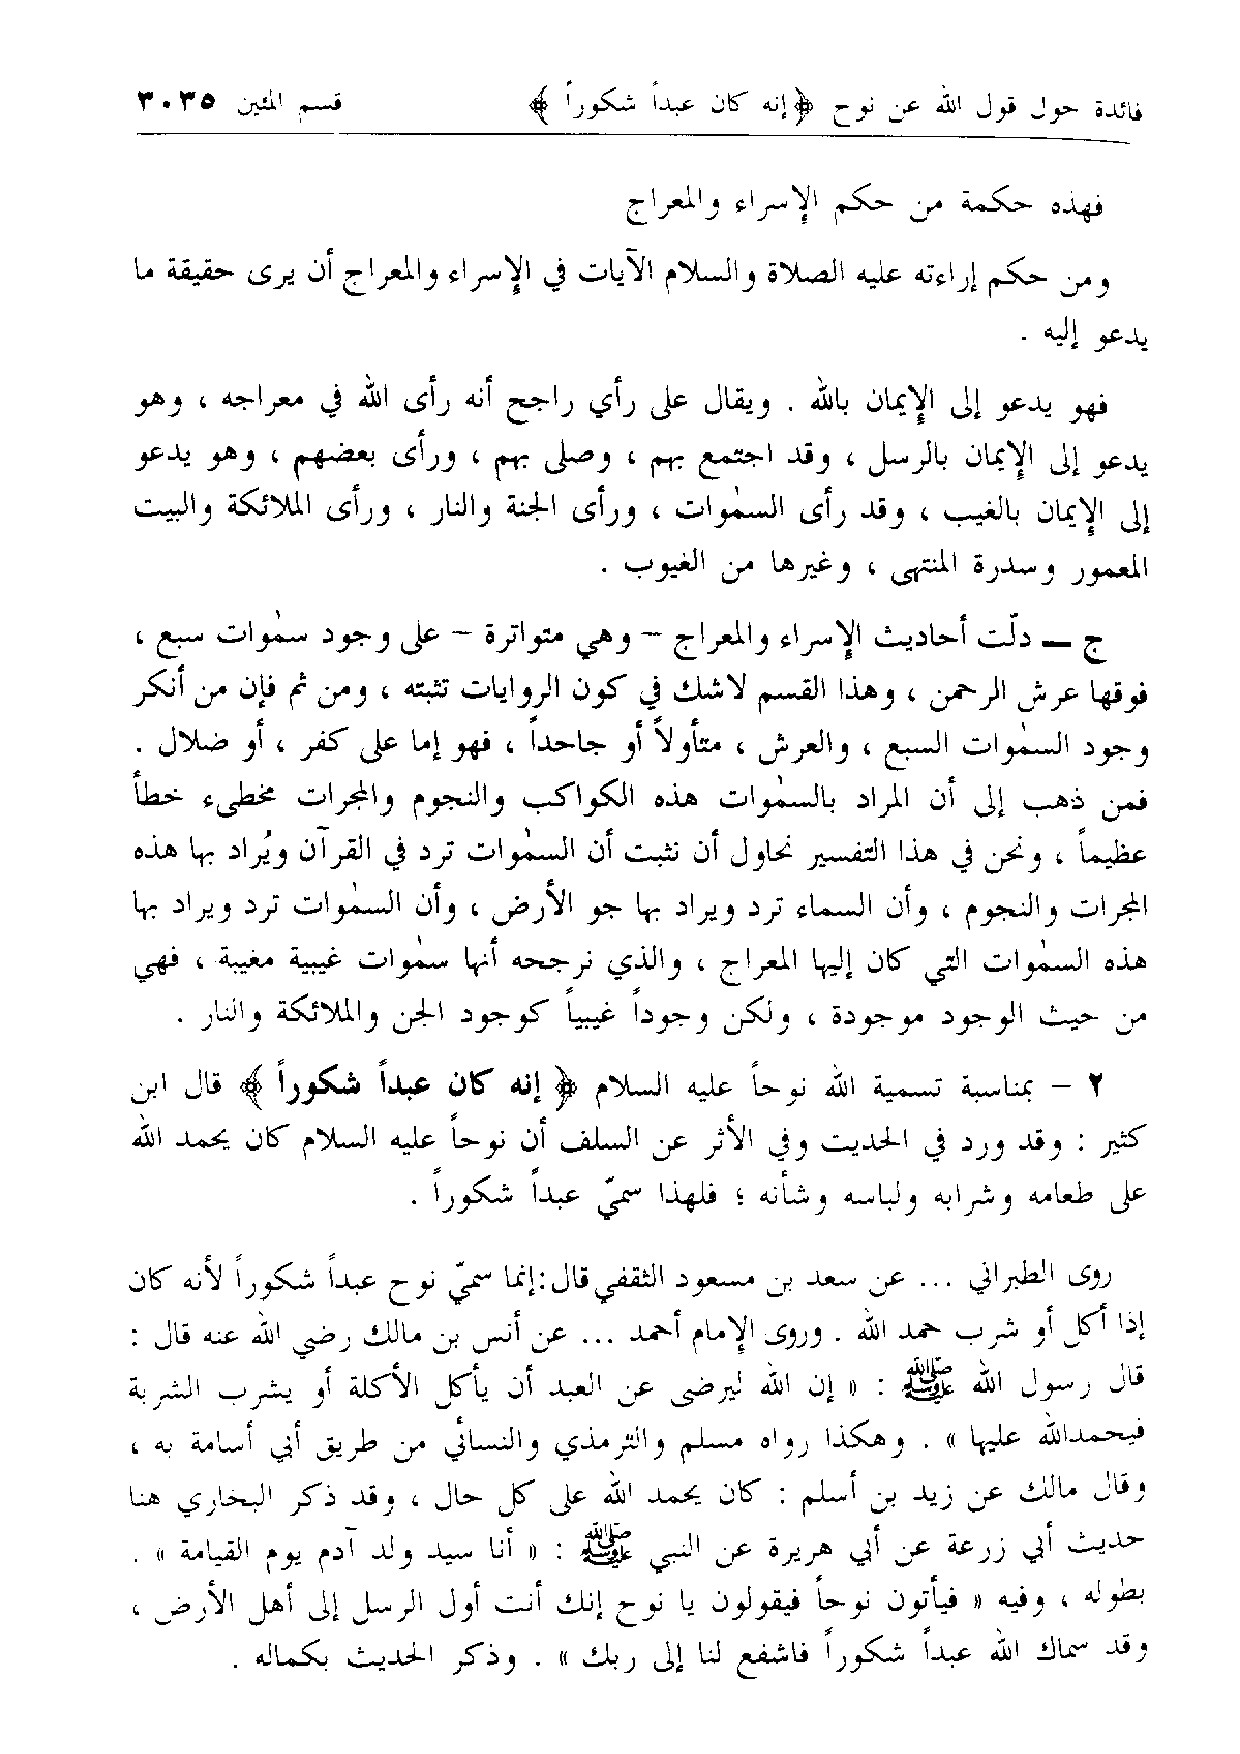 فائدة حول قول الله عن نوح ﴿ إنه كان عبداً شكوراً ﴾ قسم المئين ٣٠٣٥
فهذه حكمة من حكم الإسراء والمعراج
ومن حكم إراءته عليه الصلاة والسلام الآيات في الإسراء والمعراج أن يرى حقيقة ما
يدعو إليه .
فهو يدعو إلى الإيمان بالله . ويقال على رأي راجح أنه رأى الله في معراجه ، وهو
يدعو إلى الإيمان بالرسل ، وقد اجتمع بهم ، وصلى بهم ، ورأى بعضهم ، وهو يدعو
إلى الإيمان بالغيب ، وقد رأى السمٰوات ، ورأى الجنة والنار ، ورأى الملائكة والبيت
المعمور وسدرة المنتهى ، وغيرها من الغيوب .
ج – دلّت أحاديث الإسراء والمعراج – وهي متواترة – على وجود سمٰوات سبع ،
فوقها عرش الرحمن ، وهذا القسم لاشك في كون الروايات تثبته ، ومن ثم فإن من أنكر
وجود السمٰوات السبع ، والعرش ، متأولاً أو جاحداً ، فهو إما على كفر ، أو ضلال .
فمن ذهب إلى أن المراد بالسمٰوات هذه الكواكب والنجوم والمجرات مخطىء خطأ
عظيماً ، ونحن في هذا التفسير نحاول أن نثبت أن السمٰوات ترد في القرآن ويُراد بها هذه
المجرات والنجوم ، وأن السماء ترد ويراد بها جو الأرض ، وأن السمٰوات ترد ويراد بها
هذه السمٰوات التي كان إليها المعراج ، والذي نرجحه أنها سمٰوات غيبية مغيبة ، فهي
من حيث الوجود موجودة ، ولكن وجوداً غيبياً كوجود الجن والملائكة والنار .
٢ – بمناسبة تسمية الله نوحاً عليه السلام ﴿ إنه كان عبداً شكوراً ﴾ قال ابن
كثير : وقد ورد في الحديث وفي الأثر عن السلف أن نوحاً عليه السلام كان يحمد الله
على طعامه وشرابه ولباسه وشأنه ؛ فلهذا سمّي عبداً شكوراً .
روى الطبراني ... عن سعد بن مسعود الثقفي قال: إنما سمّي نوح عبداً شكوراً لأنه كان
إذا أكل أو شرب حمد الله . وروى الإمام أحمد ... عن أنس بن مالك رضي الله عنه قال :
قال رسول الله ﷺ : « إن الله ليرضى عن العبد أن يأكل الأكلة أو يشرب الشربة
فيحمدالله عليها » . وهكذا رواه مسلم والترمذي والنسائي من طريق أبي أسامة به ،
وقال مالك عن زيد بن أسلم : كان يحمد الله على كل حال ، وقد ذكر البخاري هنا
حديث أبي زرعة عن أبي هريرة عن النبي ﷺ : « أنا سيد ولد آدم يوم القيامة » .
بطوله ، وفيه « فيأتون نوحاً فيقولون يا نوح إنك أنت أول الرسل إلى أهل الأرض ،
وقد سماك الله عبداً شكوراً فاشفع لنا إلى ربك » . وذكر الحديث بكماله .